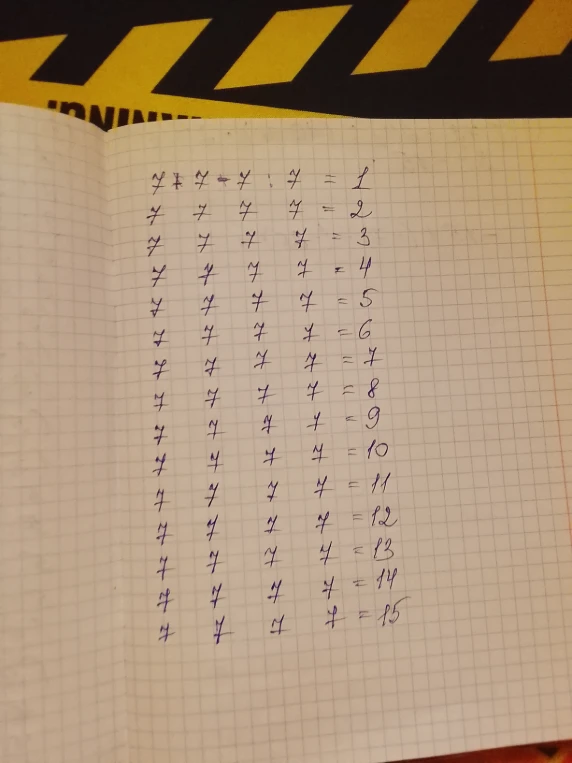 7 + 7 - 7 : 7 = 1
7 7 7 7 = 2
7 7 7 7 = 3
7 7 7 7 = 4
7 7 7 7 = 5
7 7 7 7 = 6
7 7 7 7 = 7
7 7 7 7 = 8
7 7 7 7 = 9
7 7 7 7 = 10
7 7 7 7 = 11
7 7 7 7 = 12
7 7 7 7 = 13
7 7 7 7 = 14
7 7 7 7 = 15